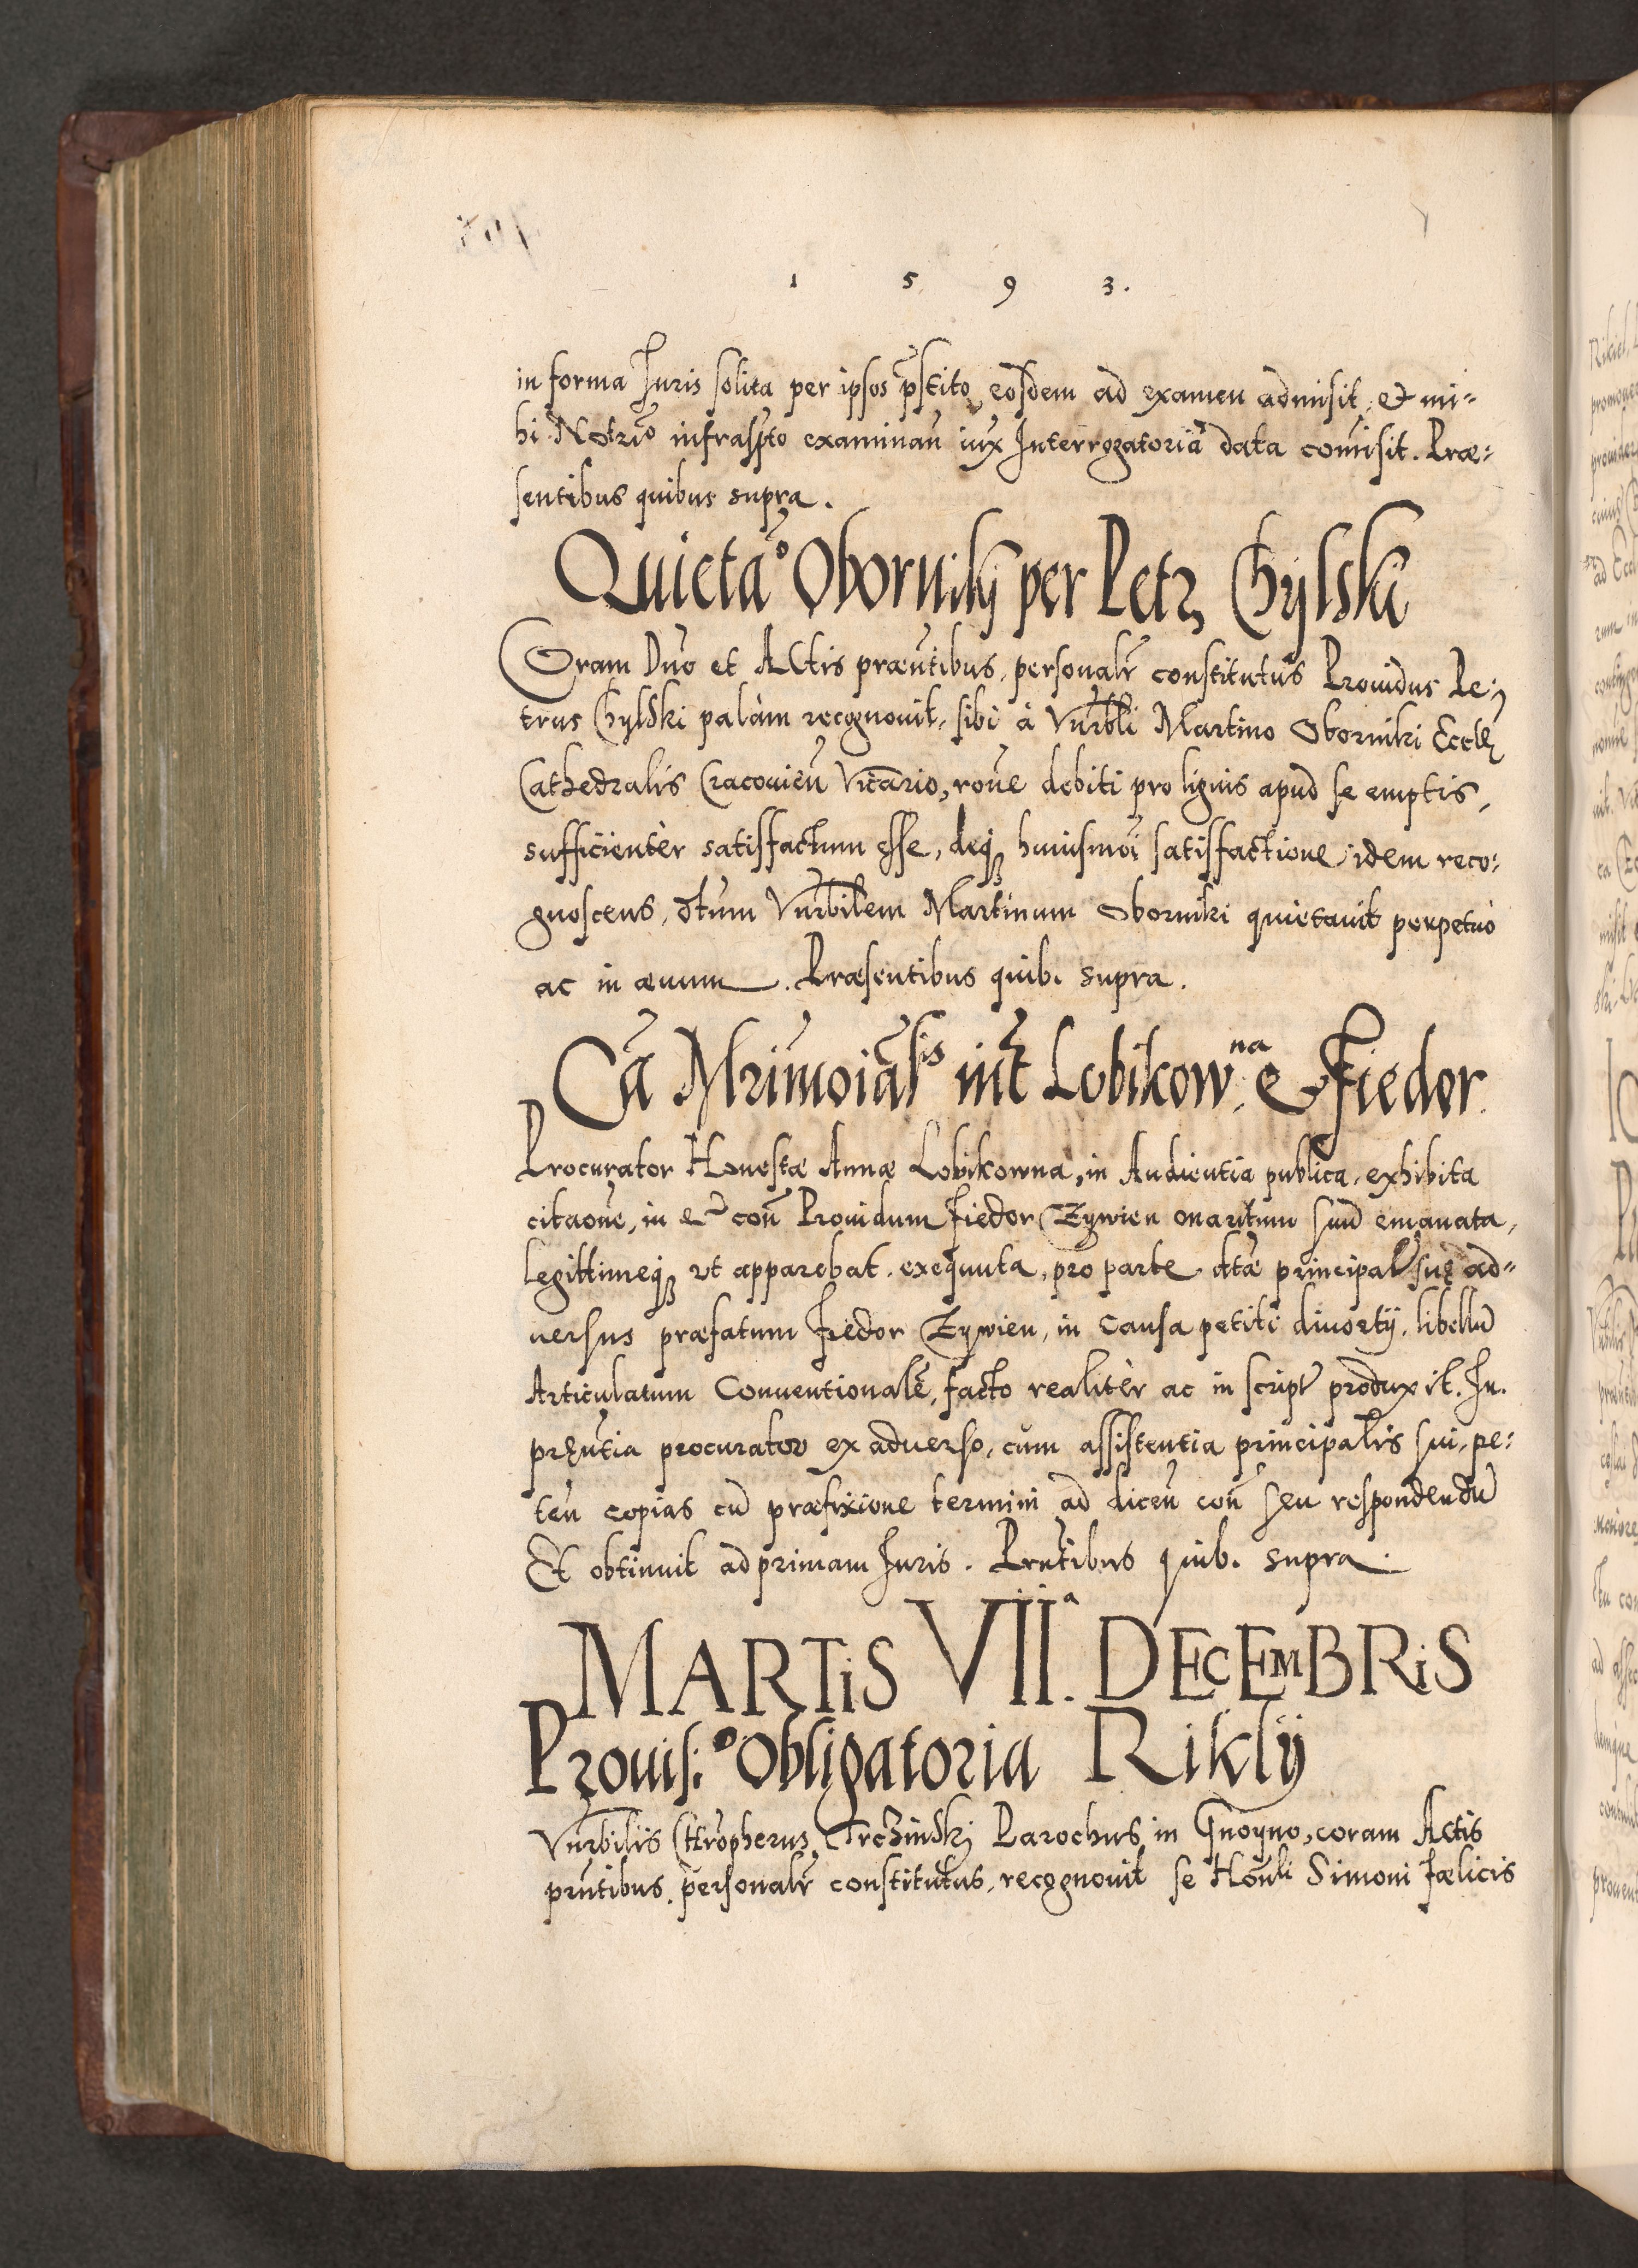 1 5 9 3.
in forma Iuris solita per ipsos p̃stito, eosdem ad examen admisit, et mi=
hi Notrio infrasspto examinan̄ iux Interrogatoria data com̄isit. Præ=
sentibus quibus supra.
Quieta͠o Oborniky per Petr. Chylski
Coram Dn̄o et Actis præn̄tibus, personalr̄ constitutus Prouidus Pe=
trus Chylski palàm recognouit, sibi à Vn̄rbli Martino Oborniki Eccłæ
Cathedralis Cracouien̄ Vicārio, rōne debiti pro lignis apud se emptis,
sufficientèr satisfactum esse, deq₃ huiusmōi satisfactione idem reco=
gnoscens, dtum Vn̄rbilem Martinum Oborniki quietauit perpetuò
ac in æuum. Præsentibus quib. supra.
Cā Mr̄imoiālis int̄ Lobikow.na et Fiedor.
Procurator Honestæ Annæ Lobikowna, in Audientia publica, exhibita
citaōne, in et con̄ Prouidum Fiedor Zywien maritum suū emanata,
Legittimeq₃ ut apparebat, exequuta, pro parte dtæ principał suę ad=
uersus præfatum Fiedor Zywien, in Causa petiti diuortij, libellū
Articulatum Conuentionalē, facto realitèr ac in script̄ produxit. In
prn̄tia procurator ex aduerso, cum assistentia principalis sui, pe=
ten̄ copias cū præfixione termini ad dicen̄ con̄ seu respondendū
Et obtinuit ad primam Iuris. Prn̄tibus quib. supra.
MARTIS VII.a DECEMBRIS
Prouis:o Obligatoria Riklÿ
Vn̄rbiliis Chr̄opherus Trczinski Parochus in Gnoyno, coram Actis
prn̄tibus personalr̄ constitutus, recognouit se Hon̄li Simoni Fælicis